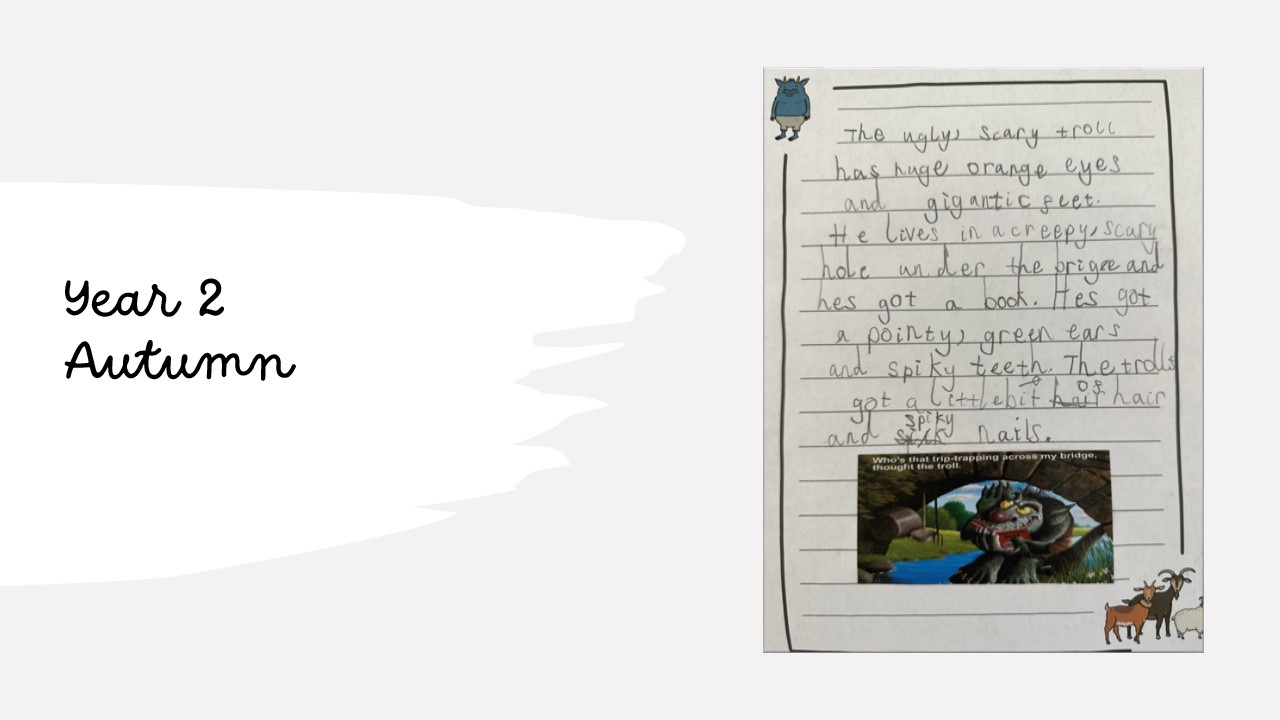 Year 2
Autumn
The ugly, scary troll
has huge orange eyes
and gigantic feet.
He lives in a creepy, scary
hole under the brigee and
hes got a book. Hes got
a pointy, green ears
and spiky teeth. The trolls
got a little bit of hair
and spiky nails.
Who's that trip-trapping across my bridge,
thought the troll.